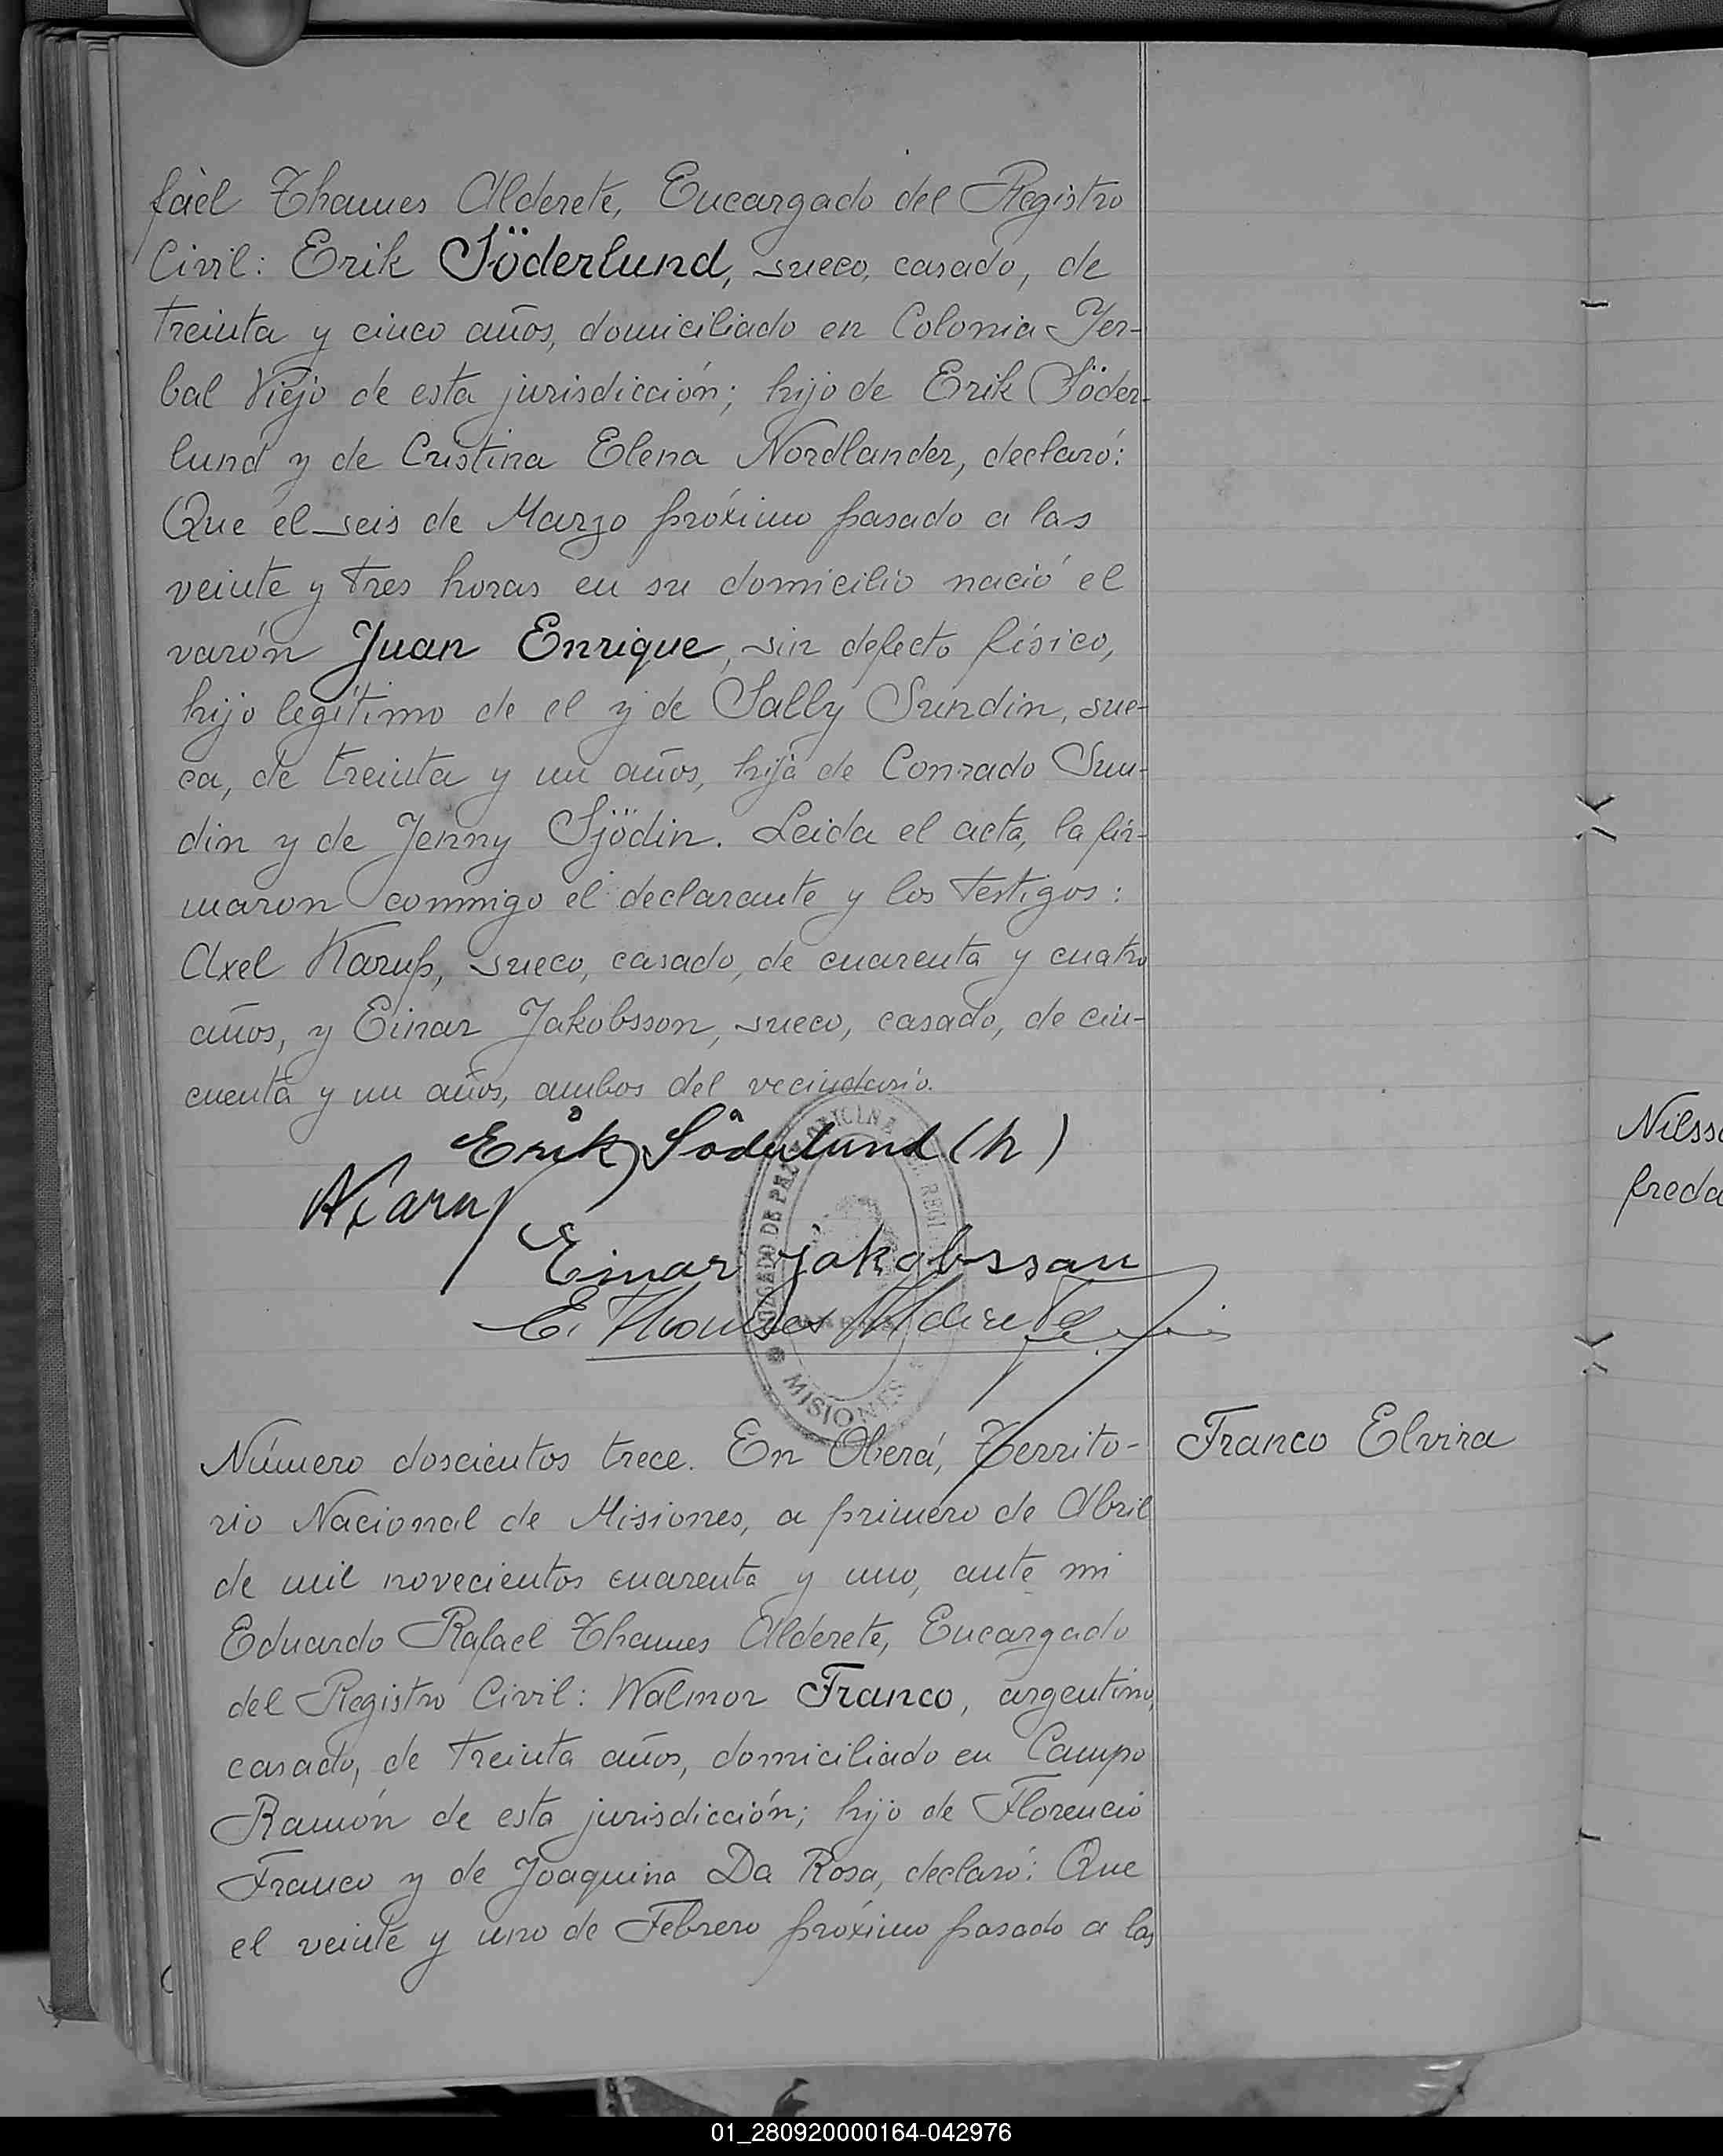 fael Thames Alderete, Encargado del Registro
Civil: Erik Söderlund, sueco, casado, de
treinta y cinco años, domiciliado en Colonia Yer-
bal Viejo de esta jurisdicción; hijo de Erik Söder-
lund y de Cristina Elena Nordlander, declaró:
Que el seis de Marzo próximo pasado a las
veinte y tres horas en su domicilio nació el
varón Juan Enrique, sin defecto físico,
hijo legítimo de el y de Sally Sundin, sue-
ca, de treinta y un años, hija de Conrado Sun-
din y de Jenny Sjödin. Leida el acta, la fir-
maron conmigo el declarante y los testigos:
Axel Karup, sueco, casado, de cuarenta y cuatro
años, y Einar Jakobsson, sueco, casado, de cin-
cuenta y un años, ambos del vecindario.
Erik Söderlund (h)
Einar Jakobsson
E. Thames Alderete
JUZGADO DE PAZ OFICINA REGI
MISIONES
Número doscientos trece. En Oberá, Territo-
Franco Elvira
rio Nacional de Misiones, a primero de Abril
de mil novecientos cuarenta y uno, ante mi
Eduardo Rafael Thames Alderete, Encargado
del Registro Civil: Walmor Franco, argentino,
casado, de treinta años, domiciliado en Campo
Ramón de esta jurisdicción; hijo de Florencio
Franco y de Joaquina Da Rosa, declaró: Que
el veinte y uno de Febrero próximo pasado a las
Nilss
freda
01_280920000164-042976